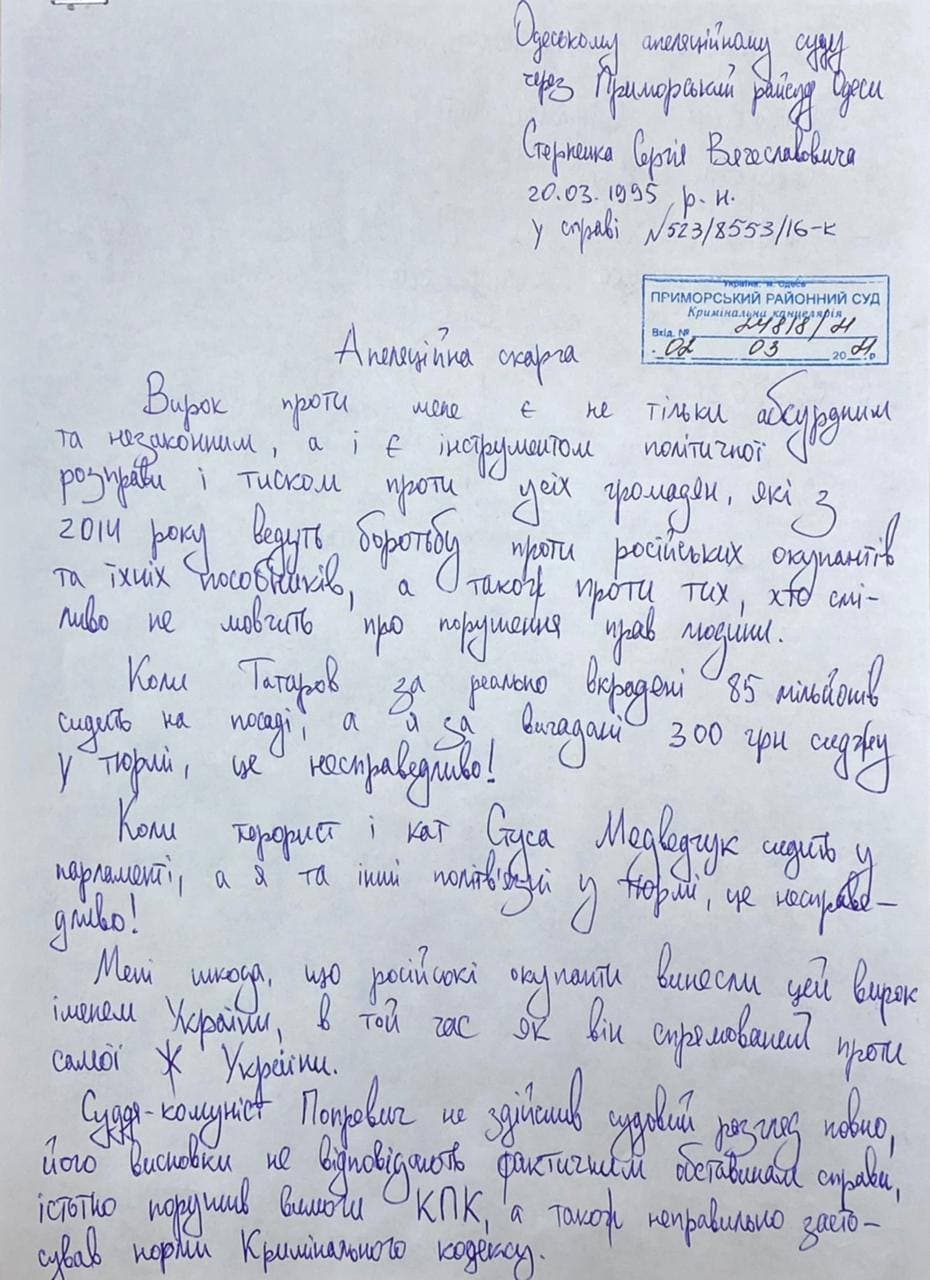 Одеському апеляційному суду
через Приморський райсуд Одеси
Стерненка Сергія Вячеславовича
20.03.1995 р.н.
у справі №523/8553/16-к
Україна, м. Одеса
ПРИМОРСЬКИЙ РАЙОННИЙ СУД
Кримінальна канцелярія
Вхід. № 24818/21
02 03 2021 р
Апеляційна скарга
Вирок проти мене є не тільки абсурдним
та незаконним, а і є інструментом політичної
розправи і тиском проти усіх громадян, які з
2014 року ведуть боротьбу проти російських окупантів
та їхніх пособників, а також проти тих, хто смі-
ливо не мовчить про порушення прав людини.
Коли Татаров за реально вкрадені 85 мільйонів
сидить на посаді, а я за вигадані 300 грн сиджу
у тюрмі, це несправедливо!
Коли терорист і кат Стуса Медведчук сидить у
парламенті, а я та інші політв'язні у тюрмі, це несправе-
дливо!
Мені шкода, що російські окупанти винесли цей вирок
іменем України, в той час як він спрямований проти
самої ж України.
Суддя-комуніст Попревич не здійснив судовий розгляд повно,
його висновки не відповідають фактичним обставинам справи,
істотно порушив вимоги КПК, а також неправильно засто-
сував норми Кримінального кодексу.